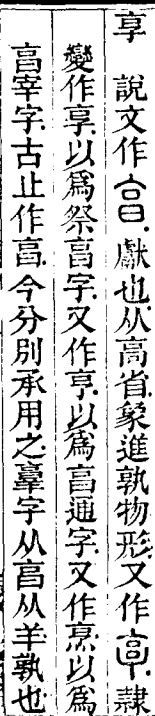 享　說文作亯獻也从高省象進孰物形又作𠅠隸
變作享以爲祭亯字又作亨以爲亯通字又作烹以爲
亯宰字古止作亯今分別承用之𦎫字从亯从羊孰也